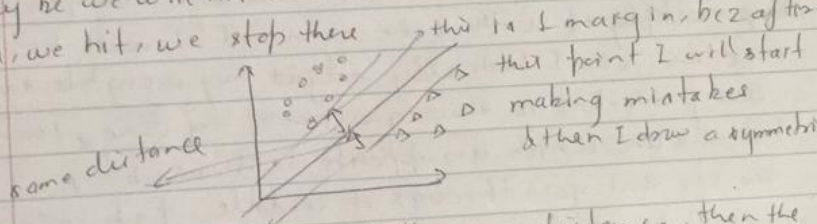 we hit, we stop there this is 1 margin, bcz after
this point I will start
making mistakes
& then I draw a symmetri
same distance
then the